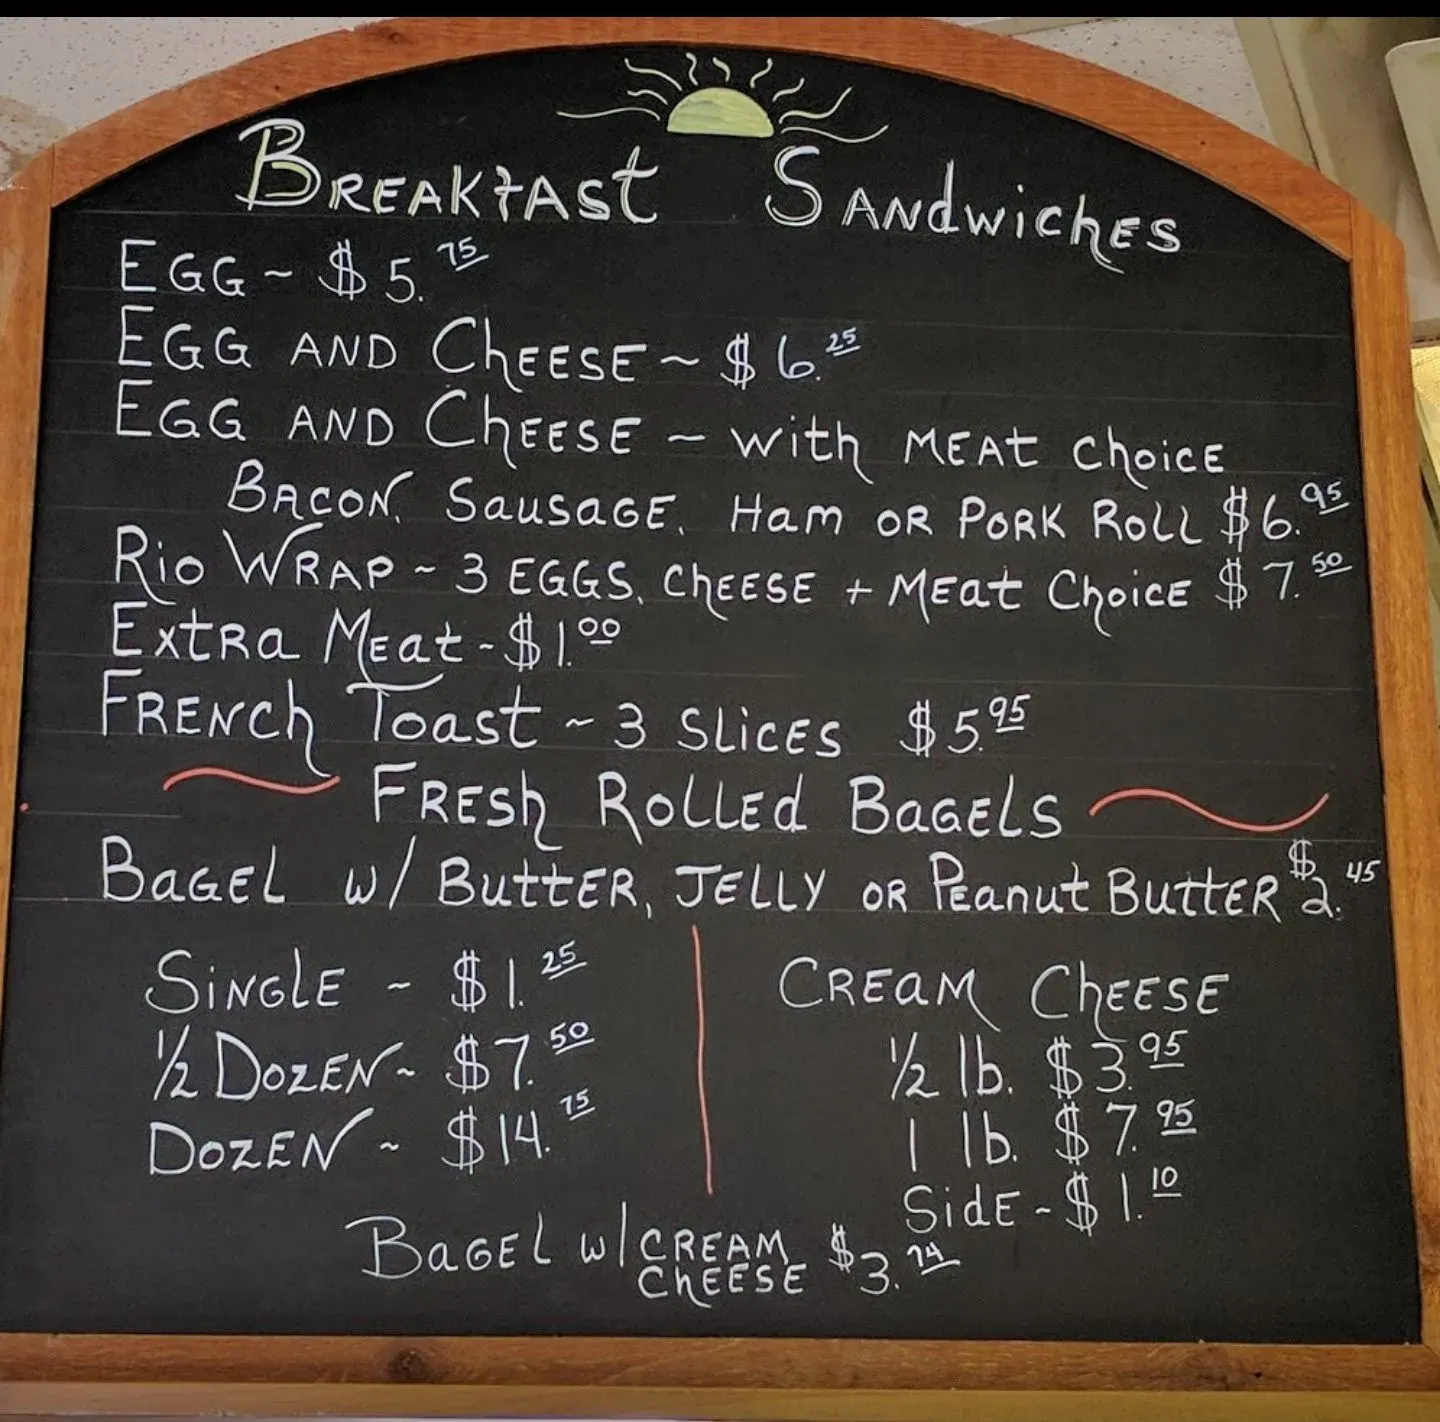 Breakfast Sandwiches
Egg ~ $5.75
Egg and Cheese ~ $6.25
Egg and Cheese ~ with meat choice
Bacon, Sausage, Ham or Pork Roll $6.95
Rio Wrap ~ 3 Eggs, Cheese + Meat Choice $7.50
Extra Meat - $1.00
French Toast ~ 3 slices $5.95
Fresh Rolled Bagels
Bagel w/ Butter, Jelly or Peanut Butter $2.45
Single ~ $1.25
1/2 Dozen ~ $7.50
Dozen ~ $14.75
Cream Cheese
1/2 lb. $3.95
1 lb. $7.95
Side ~ $1.10
Bagel w/ cream cheese $3.74